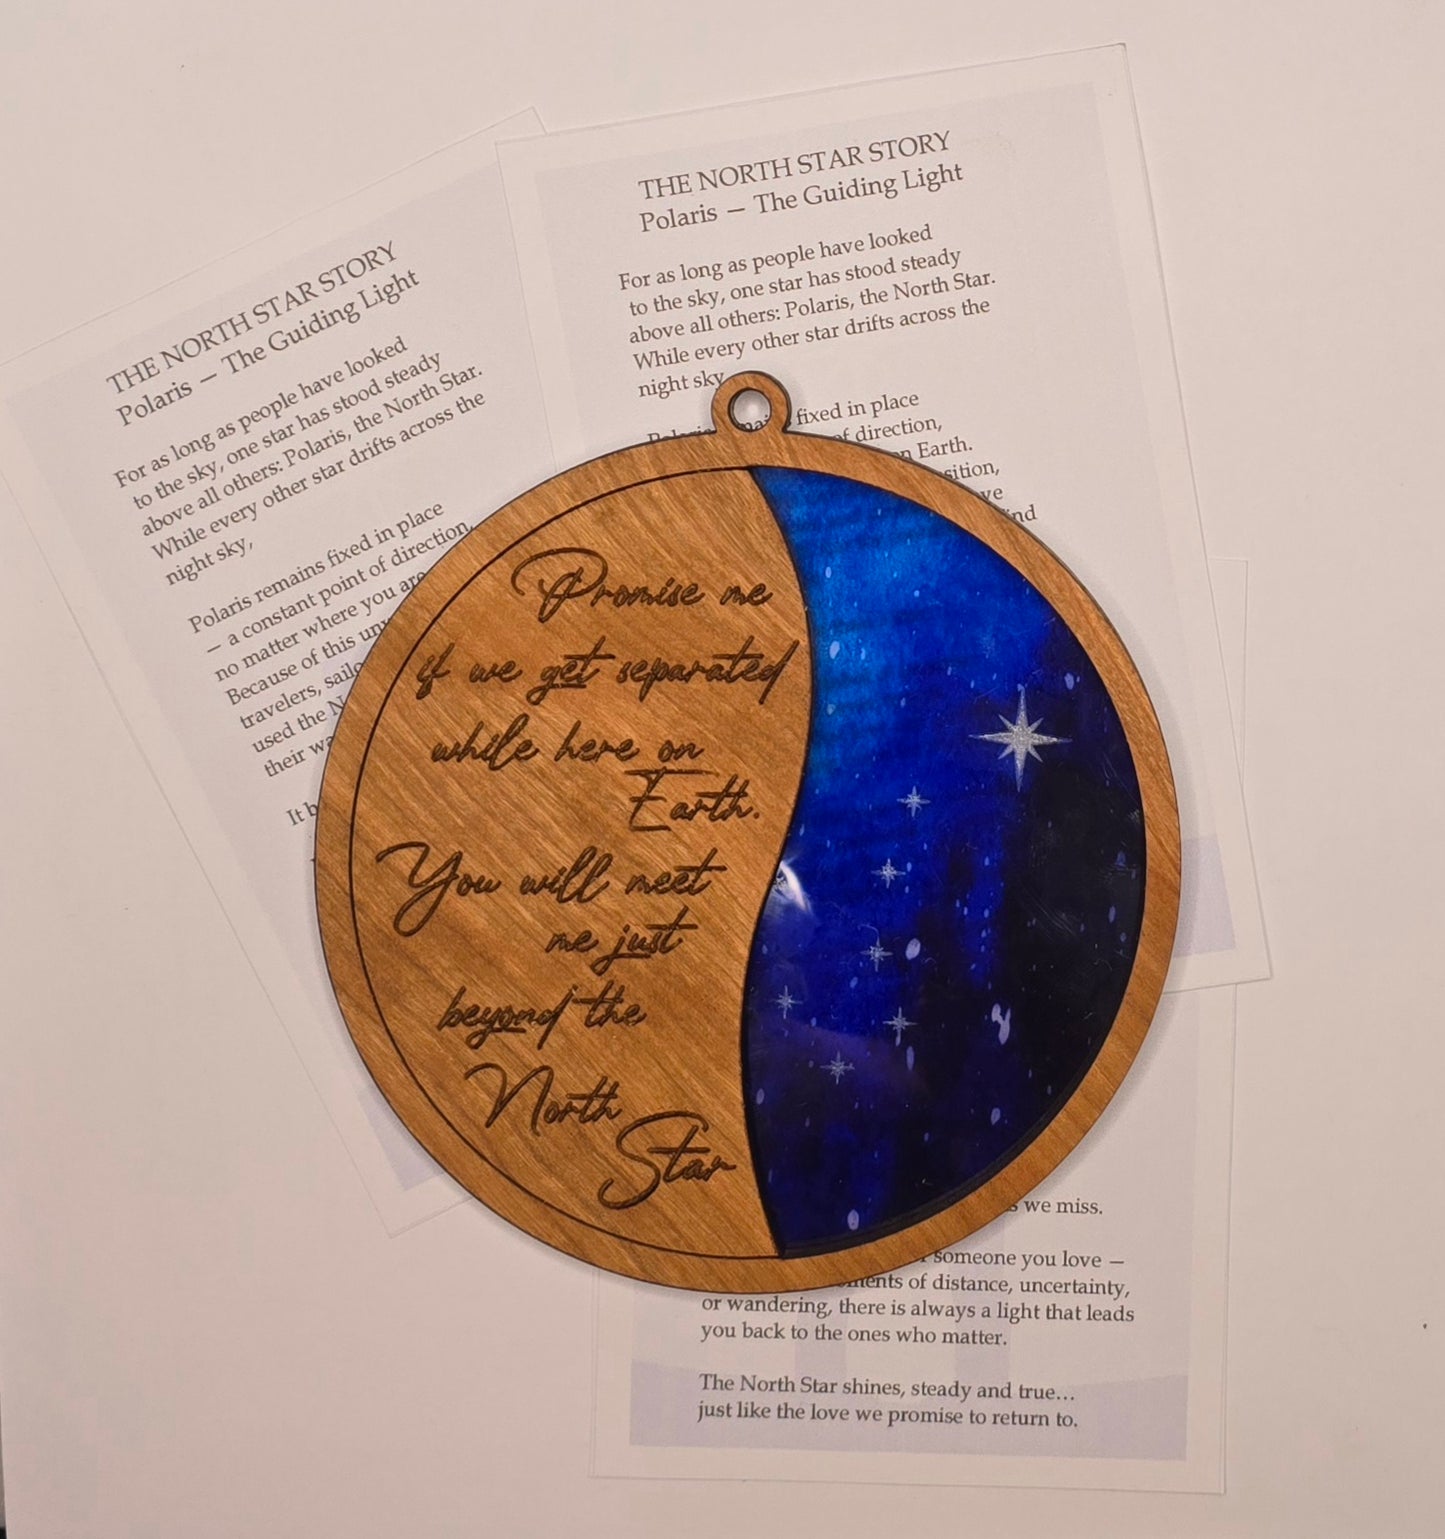 THE NORTH STAR STORY
Polaris — The Guiding Light
For as long as people have looked
to the sky, one star has stood steady
above all others: Polaris, the North Star.
While every other star drifts across the
night sky,
Polaris remains fixed in place
— a constant point of direction,
no matter where you are
Because of this
travelers,
used the
their
It
THE NORTH STAR STORY
Polaris — The Guiding Light
For as long as people have looked
to the sky, one star has stood steady
above all others: Polaris, the North Star.
While every other star drifts across the
night sky
fixed in place
of direction,
Earth.
Promise me
if we get separated
while here on
Earth.
You will meet
me just
beyond the
North
Star
we miss.
someone you love —
of distance, uncertainty,
or wandering, there is always a light that leads
you back to the ones who matter.
The North Star shines, steady and true…
just like the love we promise to return to.